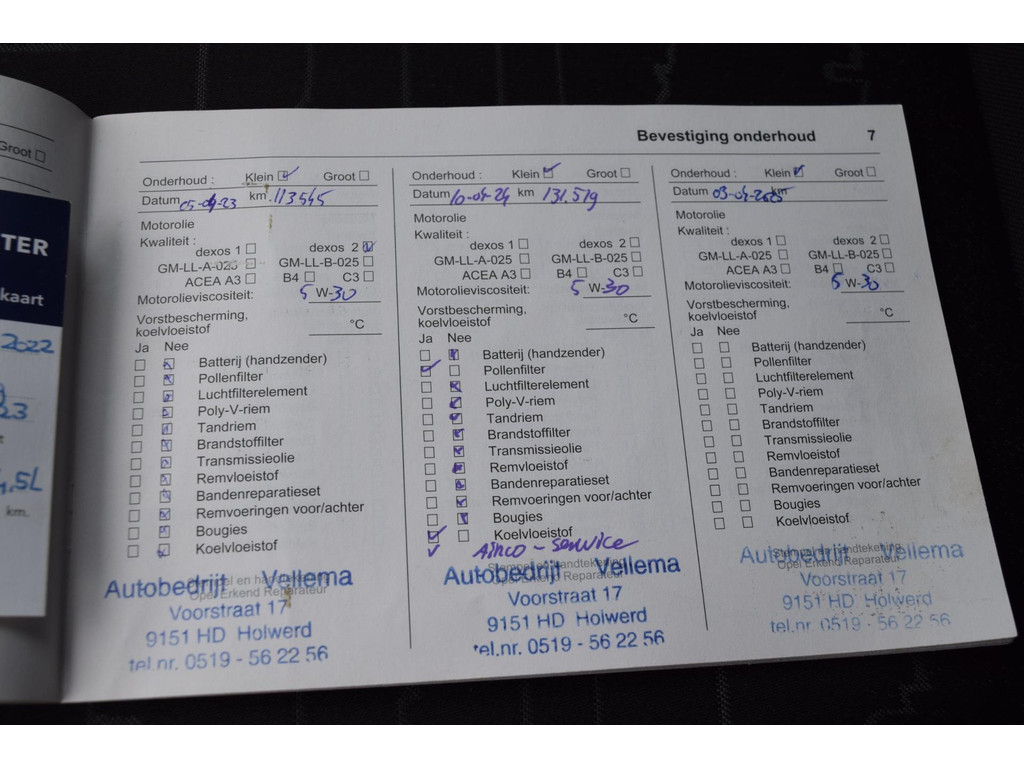 Groot
TER
kaart
2022
23
.5L
km.
Bevestiging onderhoud 7
Onderhoud : Klein Groot
Datum 05-04-23 km 113545
Motorolie
Kwaliteit :
dexos 1 dexos 2
GM-LL-A-025 GM-LL-B-025
ACEA A3 B4 C3
Motorolieviscositeit: 5 W-30
Vorstbescherming,
koelvloeistof °C
Ja Nee
Batterij (handzender)
Pollenfilter
Luchtfilterelement
Poly-V-riem
Tandriem
Brandstoffilter
Transmissieolie
Remvloeistof
Bandenreparatieset
Remvoeringen voor/achter
Bougies
Koelvloeistof
Autobedrijf Vellema
Opel Erkend Reparateur
Voorstraat 17
9151 HD Holwerd
tel.nr. 0519 - 56 22 56
Onderhoud : Klein Groot
Datum 10-04-24 km 131.519
Motorolie
Kwaliteit :
dexos 1 dexos 2
GM-LL-A-025 GM-LL-B-025
ACEA A3 B4 C3
Motorolieviscositeit: 5 W-30
Vorstbescherming,
koelvloeistof °C
Ja Nee
Batterij (handzender)
Pollenfilter
Luchtfilterelement
Poly-V-riem
Tandriem
Brandstoffilter
Transmissieolie
Remvloeistof
Bandenreparatieset
Remvoeringen voor/achter
Bougies
Koelvloeistof
Airco - service
Autobedrijf Vellema
Opel Erkend Reparateur
Voorstraat 17
9151 HD Holwerd
tel.nr. 0519 - 56 22 56
Onderhoud : Klein Groot
Datum 03-04-2025 km
Motorolie
Kwaliteit :
dexos 1 dexos 2
GM-LL-A-025 GM-LL-B-025
ACEA A3 B4 C3
Motorolieviscositeit: 5 W-30
Vorstbescherming,
koelvloeistof °C
Ja Nee
Batterij (handzender)
Pollenfilter
Luchtfilterelement
Poly-V-riem
Tandriem
Brandstoffilter
Transmissieolie
Remvloeistof
Bandenreparatieset
Remvoeringen voor/achter
Bougies
Koelvloeistof
Autobedrijf Vellema
Opel Erkend Reparateur
Voorstraat 17
9151 HD Holwerd
tel.nr. 0519 - 56 22 56